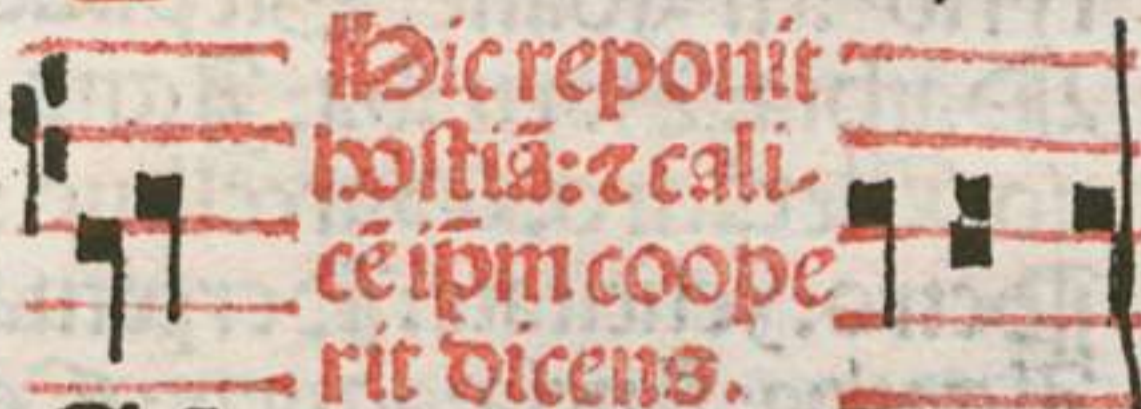 Hic reponit
hostiā: ⁊ cali-
cē ip̄m coope
rit dicens.